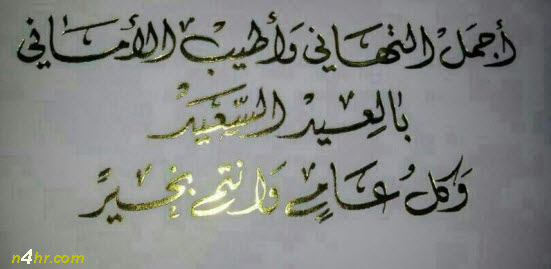 أجمل التهاني وأطيب الأماني
بالعيد السعيد
وكل عام وانتم بخير
n4hr.com